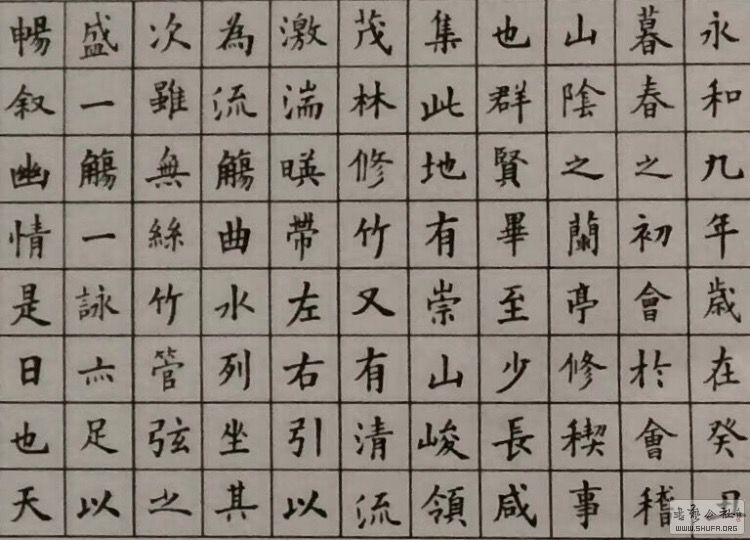 永和九年歲在癸丑
暮春之初會於會稽
山陰之蘭亭修稧事
也群賢畢至少長咸
集此地有崇山峻領
茂林修竹又有清流
激湍暎帶左右引以
為流觴曲水列坐其
次雖無絲竹管弦之
盛一觴一詠亦足以
暢叙幽情是日也天
WWW.SHUFA.ORG